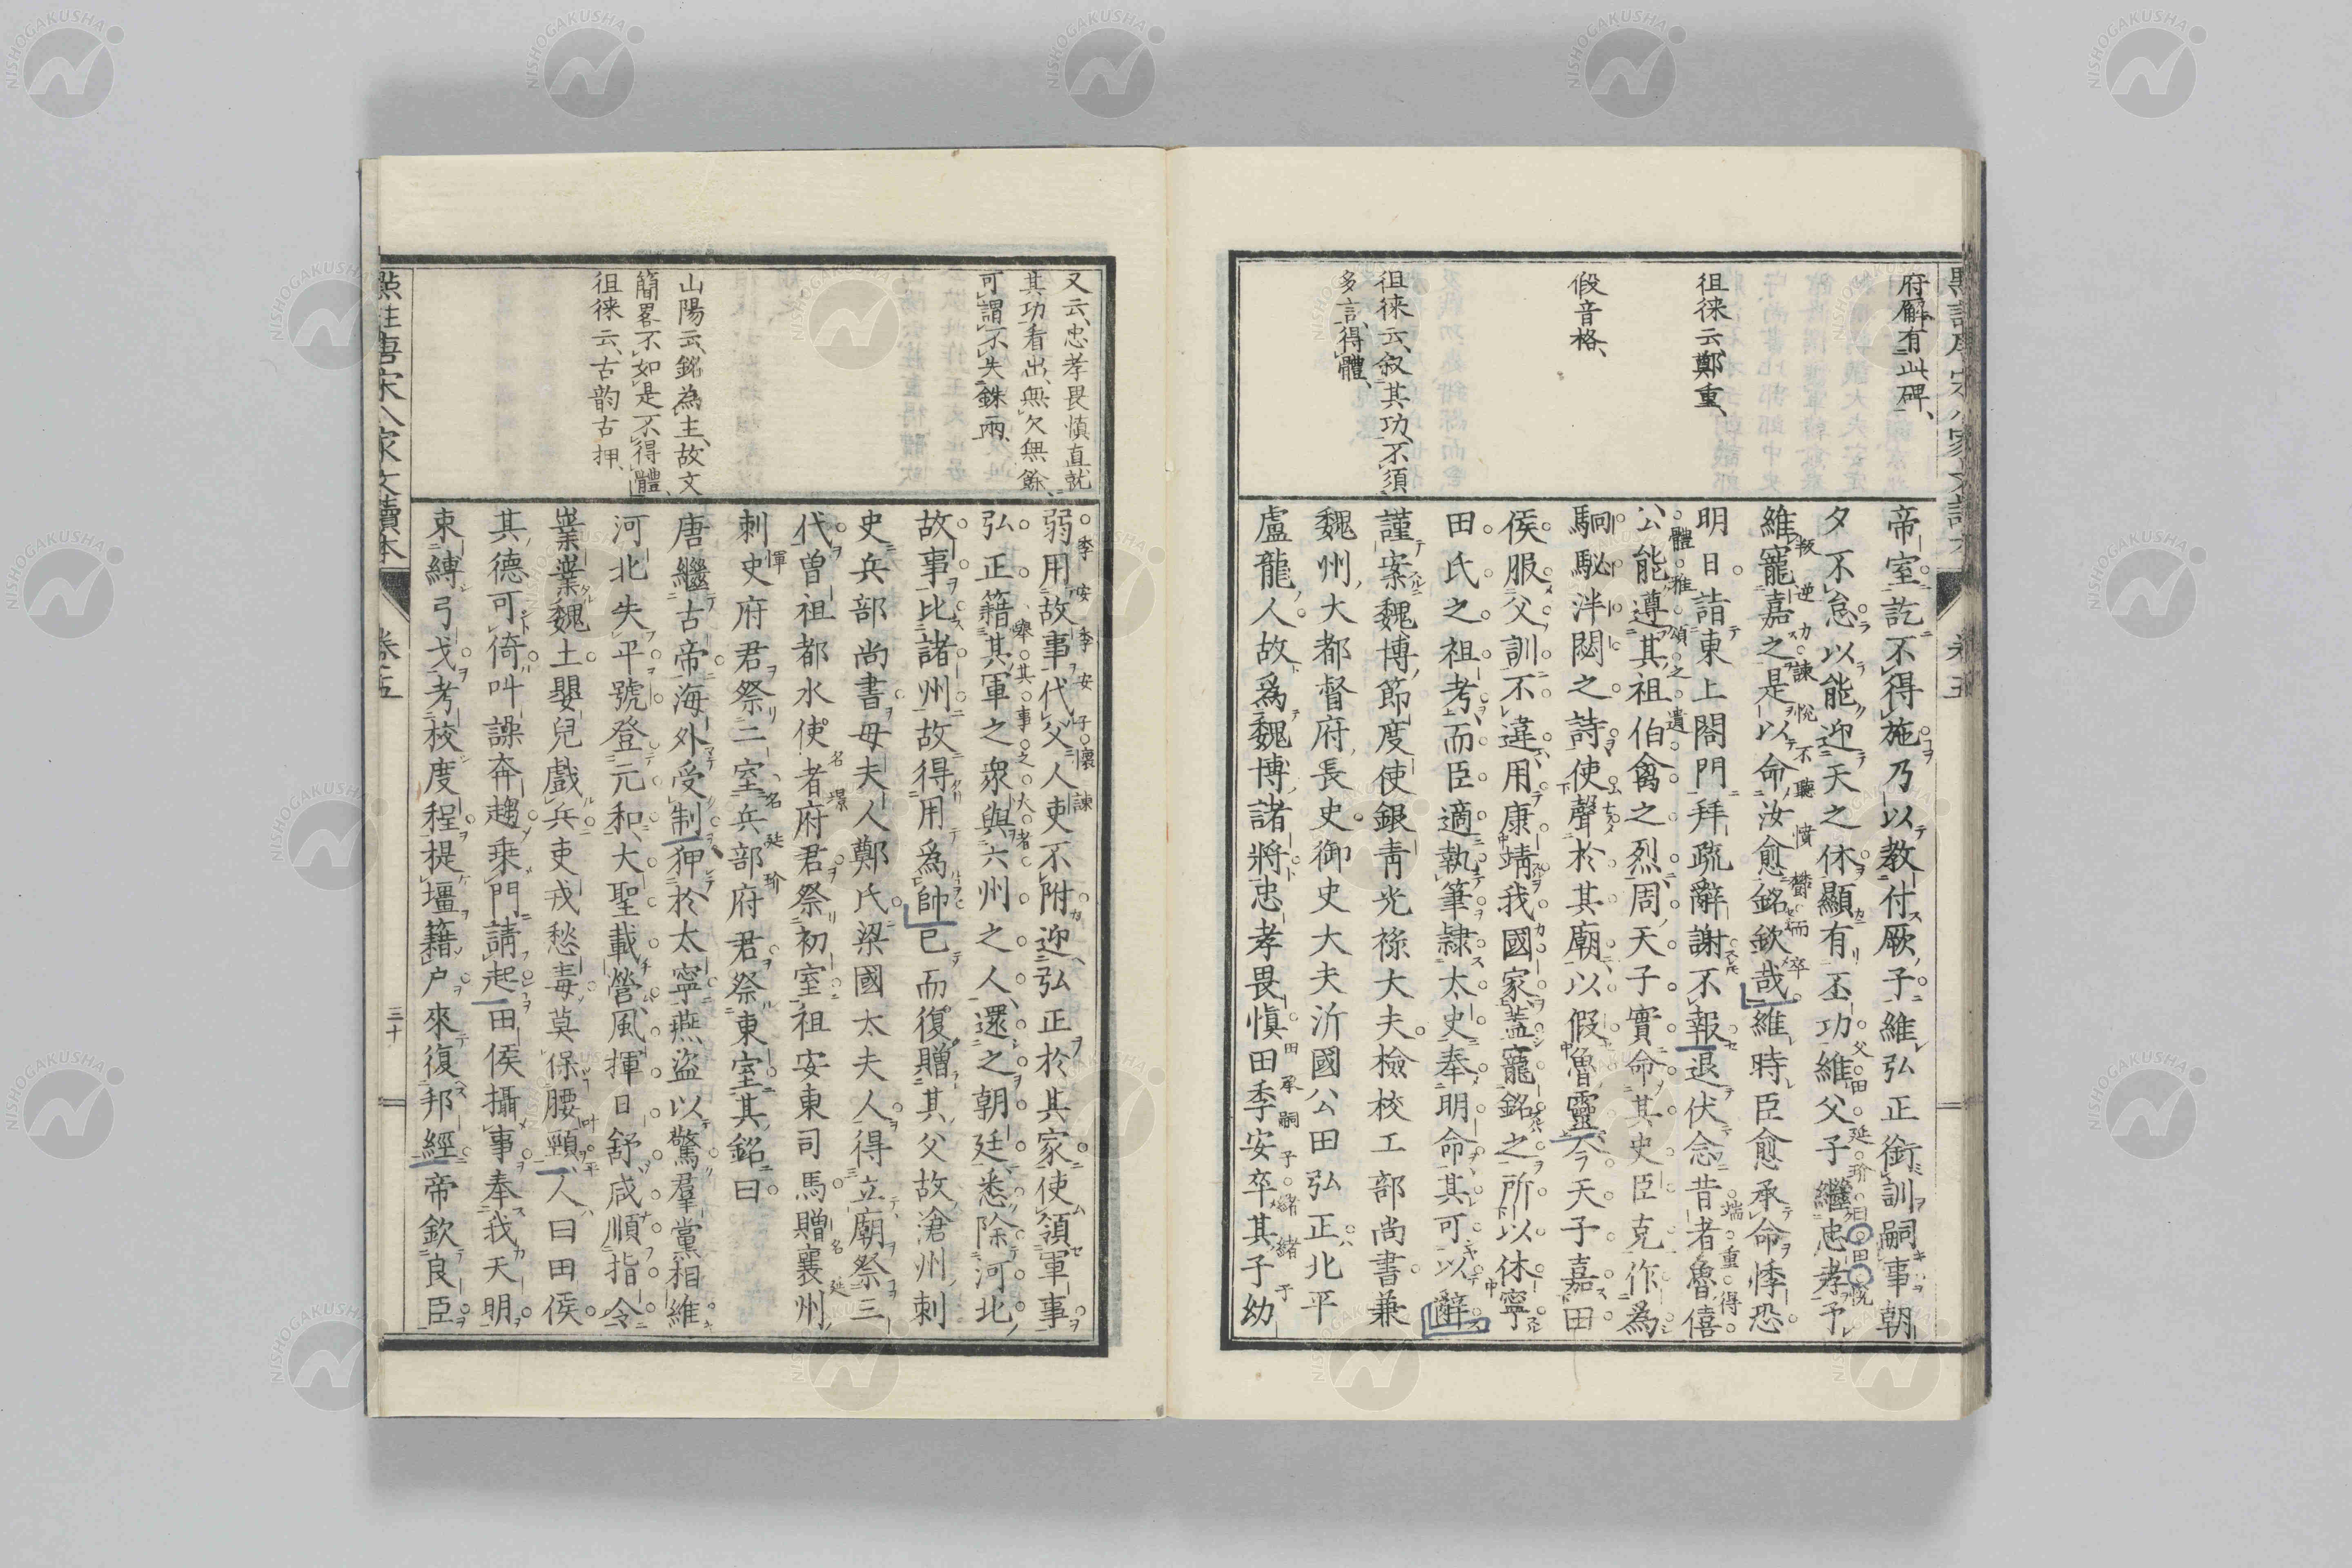 府解有此碑、
徂徠云、鄭重、
假音格、
徂徠云、敘其功、不須
多言、得體、
帝室訖不得施乃以教付厥子維弘正銜訓嗣事朝
夕不怠以能迎天之休顯有丕功維父子繼忠孝予
維寵嘉之是以命汝愈銘欽哉維時臣愈承命悸恐
明日詣東上閤門拜疏辭謝不報退伏念昔者魯僖
公能遵其祖伯禽之烈周天子實命其史臣克作爲
駉駜泮閟之詩使聲於其廟以假魯靈今天子嘉田
侯服父訓不違用康靖我國家蓋寵銘之所以休寧
田氏之祖考而臣適執筆隸太史奉明命其可以辭
謹案魏博節度使銀青光祿大夫檢校工部尚書兼
魏州大都督府長史御史大夫沂國公田弘正北平
盧龍人故爲魏博諸將忠孝畏愼田季安卒其子幼
又云、忠孝畏慎、直就
其功看出、無欠無餘、
可謂不失銖兩、
山陽云、銘為主、故文
簡畧、不如是不得體、
徂徠云、古韵古押、
弱用故事代父人吏不附迎弘正於其家使領軍事
弘正籍其軍之衆與六州之人還之朝廷悉除河北
故事比諸州故得用爲帥已而復贈其父故滄州刺
史兵部尚書母夫人鄭氏梁國太夫人得立廟祭三
代曾祖都水使者府君祭初室祖安東司馬贈襄州
刺史府君祭二室兵部府君祭東室其銘曰
唐繼古帝海外受制狎於太寧燕盜以驚羣黨相維
河北失平號登元和大聖載營風揮日舒咸順指令
嶪嶪魏土嬰兒戲兵吏戎愁毒莫保腰頸人曰田侯
其德可倚叫譟奔趨乘門請起田侯攝事奉我天明
束縛弓戈考校度程提壃籍戶來復邦經帝欽良臣
點註唐宋八家文讀本
卷五
三十